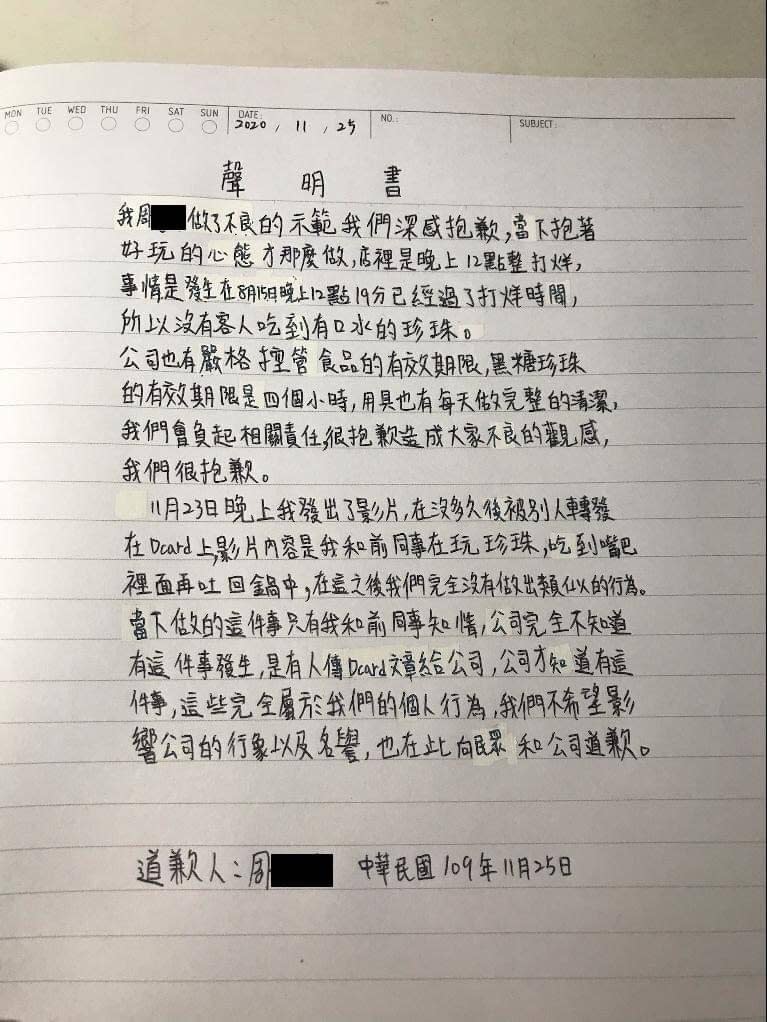 MON TUE WED THU FRI SAT SUN DATE: 2020 , 11 , 25 NO.: SUBJECT:
聲 明 書
我周 做了不良的示範我們深感抱歉,當下抱著
好玩的心態才那麼做,店裡是晚上12點整打烊,
事情是發生在8月15日晚上12點19分已經過了打烊時間,
所以沒有客人吃到有口水的珍珠。
公司也有嚴格控管食品的有效期限,黑糖珍珠
的有效期限是四個小時,用具也有每天做完整的清潔,
我們會負起相關責任,很抱歉造成大家不良的觀感,
我們很抱歉。
11月23日晚上我發出了影片,在沒多久後被別人轉發
在Dcard上,影片內容是我和前同事在玩珍珠,吃到嘴巴
裡面再吐回鍋中,在這之後我們完全沒有做出類似的行為。
當下做的這件事只有我和前同事知情,公司完全不知道
有這件事發生,是有人傳Dcard文章給公司,公司才知道有這
件事,這些完全屬於我們的個人行為,我們不希望影
響公司的行象以及名譽,也在此向民眾和公司道歉。
道歉人:周 中華民國109年11月25日